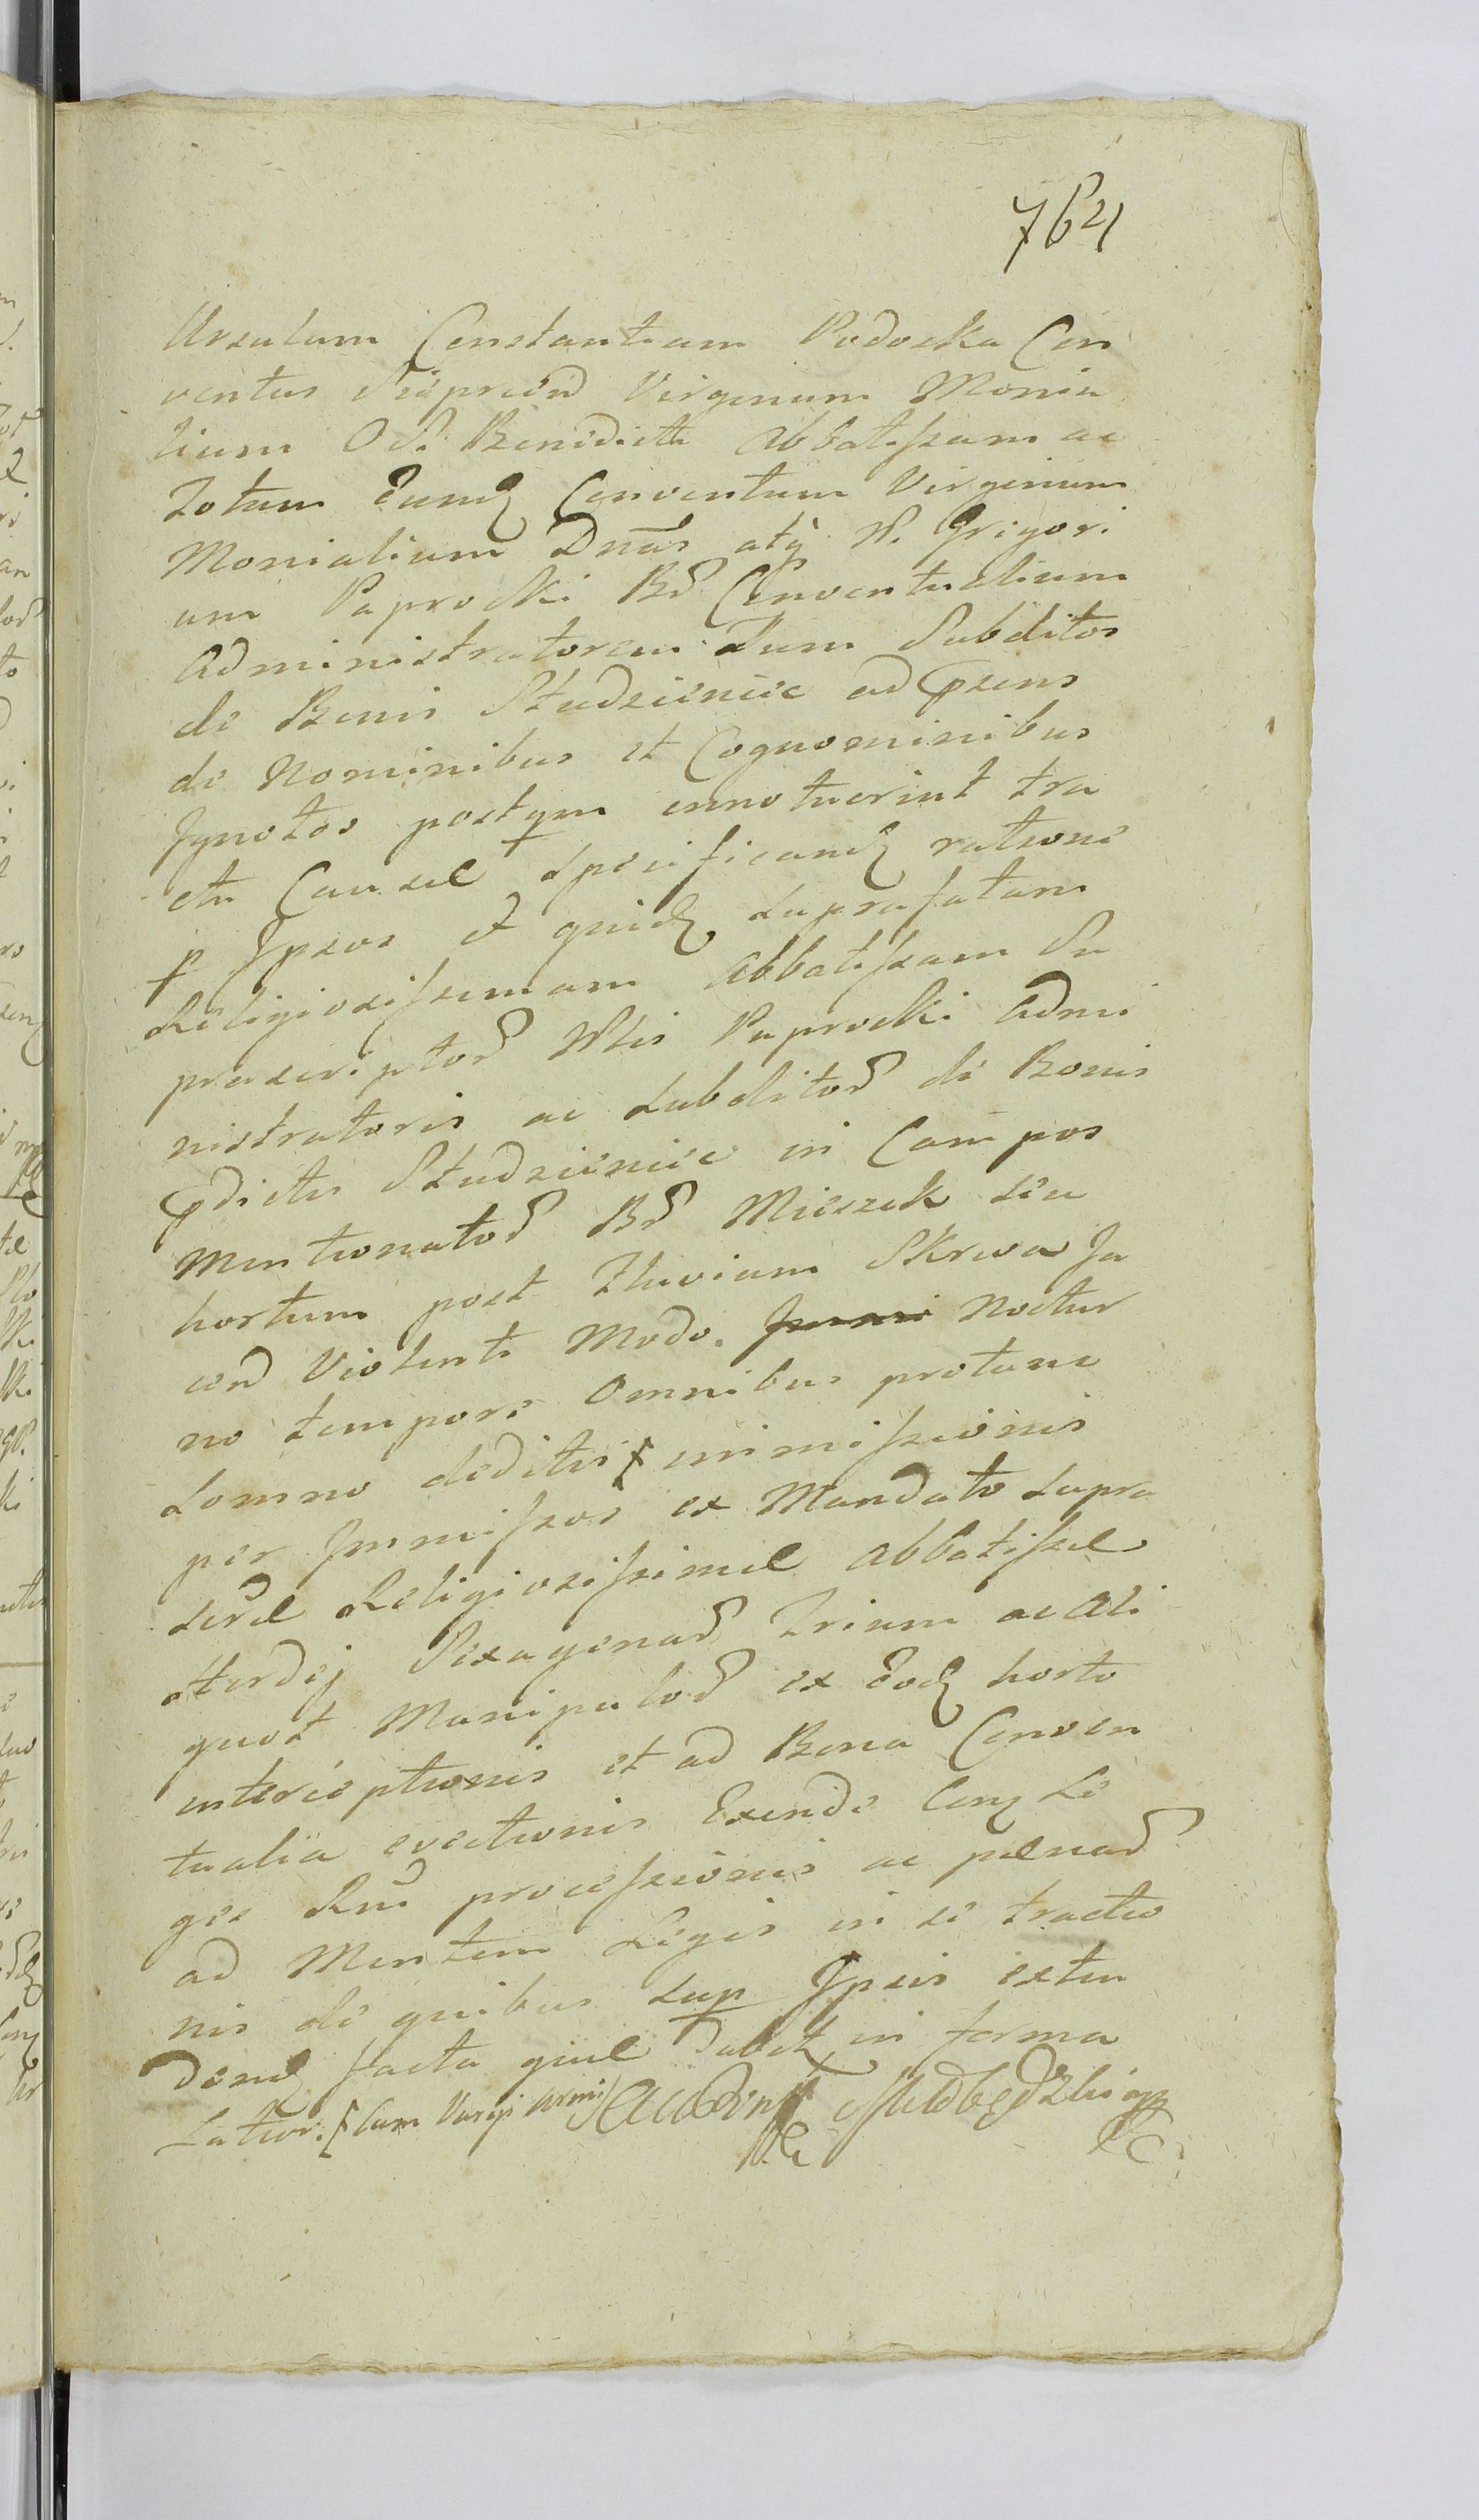 764
Ursulam Constantiam Podoska Con
ventus Sieprcen̄ Virginum Monia
lium O. S. Benedicti Abbatissam ac
Totum Eundꝫ Conventum Virginum
Monialium Dnas atq̀ N. Grigori
um Paprocki Br̄ Conventualium
Administratorem Tum Subditos
de Bonis Studzieniec ad p̃sens
de Nominibus et Cognominibus
Ignotos postqm innotuerint tra
cta Causae specificandꝫ ratione
p̱ Ipsos et quidꝫ suprafatam
Religiosissimam Abbatissam Su
prascriptor̄ Mlis Paprocki Admi
nistratoris ac Subditor̄ de Bonis
p̃dictis Studzieniec in Campos
Mentionator̄ Br̄ Mieszek seu
hortum post Fluvium Skrwa Ja
cen̄ Violenti Modo. Noctur
no tempore Omnibus protunc
somno deditis ⨍ immissionis
per Immissos ex Mandato supra
Religiosissimae Abbatissae
Hordej Sexagenar̄ Trium ac Ali
quot Manipulor̄ ex Eodꝫ horto
interceptionis et ad Bona Conven
tualia evectionis Exinde Conꝫ Le
ges Rni processionis ac paenar̄
ad Mentem Legis in se tractio
nis de quibus sup̱ Ipsis exten
dendꝫ facta quae dabit, in forma
Latior. ⨍ Cum Varijs Armis